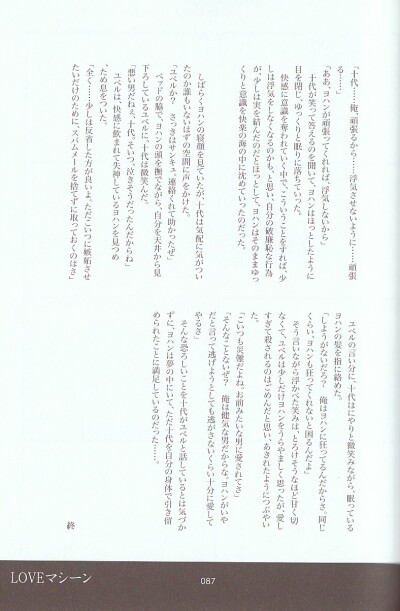 「十代……俺、頑張るから……浮気させないように……頑張
る……」
「ああ、ヨハンが頑張ってくれれば、浮気しないから」
　十代が笑って答えるのを聞いて、ヨハンはほっとしたように
目を閉じ、ゆっくりと眠りに落ちていった。
　快感に意識を奪われていく中で、こういうことをすれば、少
しは浮気をしなくなるのかも、と思い、自分の破廉恥な行為
が、少しは実を結んだのだとほっとして、ヨハンはそのままゆっ
くりと意識を快楽の海の中に沈めていったのだった。
しばらくヨハンの寝顔を見ていたが、十代は気配に気がつい
たのか誰もいないはずの空間に声をかけた。
「ユベルか？　さっきはサンキュ、連絡くれて助かったぜ」
　ベッドの脇で、ヨハンの頭を撫でながら、自分を天井から見
下ろしているユベルに、十代は微笑んだ。
「悪い男だねぇ、十代。そいつ、泣きそうだったんだからね」
　ユベルは、快感に飲まれて失神しているヨハンを見つめ
ため息をついた。
「全く……少しは反省した方が良いよ。ただこいつに嫉妬させ
たいだけのために、スパムメールを捨てずに取っておくのはさ」
　ユベルの言い分に、十代はにやりと微笑みながら、眠っている
ヨハンの髪を指に絡めた。
「しようがないだろ？　俺はヨハンに狂ってるんだからさ。同じ
くらい、ヨハンも狂ってくれないと困るんだよ」
　そう言いながら浮かべた笑みは、とろけそうなほど甘く切
なくて、ユベルは少しだけヨハンをうらやましく思ったが、愛し
すぎて殺されるのはごめんだと思い、あきれたようにつぶやい
た。
「こいつも災難だよね。お前みたいな男に愛されてさ」
「そんなことないぜ？　俺は健気な男だからな。ヨハンがいや
だと言って逃げようとしても逃がさないくらい十分に愛して
やるさ」
　そんな恐ろしいことを十代がユベルと話しているとは気づか
ずに、ヨハンは夢の中にいて、ただ十代を自分の身体で引き留
められたことに満足しているのだった……。
終
LOVEマシーン
087